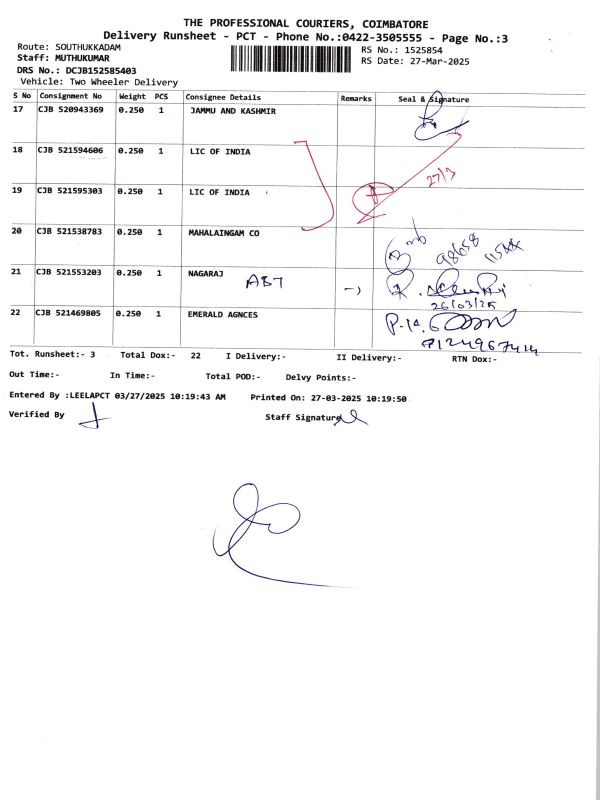 THE PROFESSIONAL COURIERS, COIMBATORE
Delivery Runsheet - PCT - Phone No.:0422-3505555 - Page No.:3
Route: SOUTHUKKADAM
RS No.: 1525854
Staff: MUTHUKUMAR
RS Date: 27-Mar-2025
DRS No.: DCJB152585403
Vehicle: Two Wheeler Delivery
S No Consignment No Weight PCS Consignee Details Remarks Seal & Signature
17 CJB 520943369 0.250 1 JAMMU AND KASHMIR
18 CJB 521594606 0.250 1 LIC OF INDIA
27/3
19 CJB 521595303 0.250 1 LIC OF INDIA
20 CJB 521538783 0.250 1 MAHALAINGAM CO
21 CJB 521553203 0.250 1 NAGARAJ
ABT
26/03/25
22 CJB 521469805 0.250 1 EMERALD AGNCES
Tot. Runsheet:- 3 Total Dox:- 22 I Delivery:- II Delivery:- RTN Dox:-
Out Time:- In Time:- Total POD:- Delvy Points:-
Entered By :LEELAPCT 03/27/2025 10:19:43 AM Printed On: 27-03-2025 10:19:50
Verified By Staff Signature